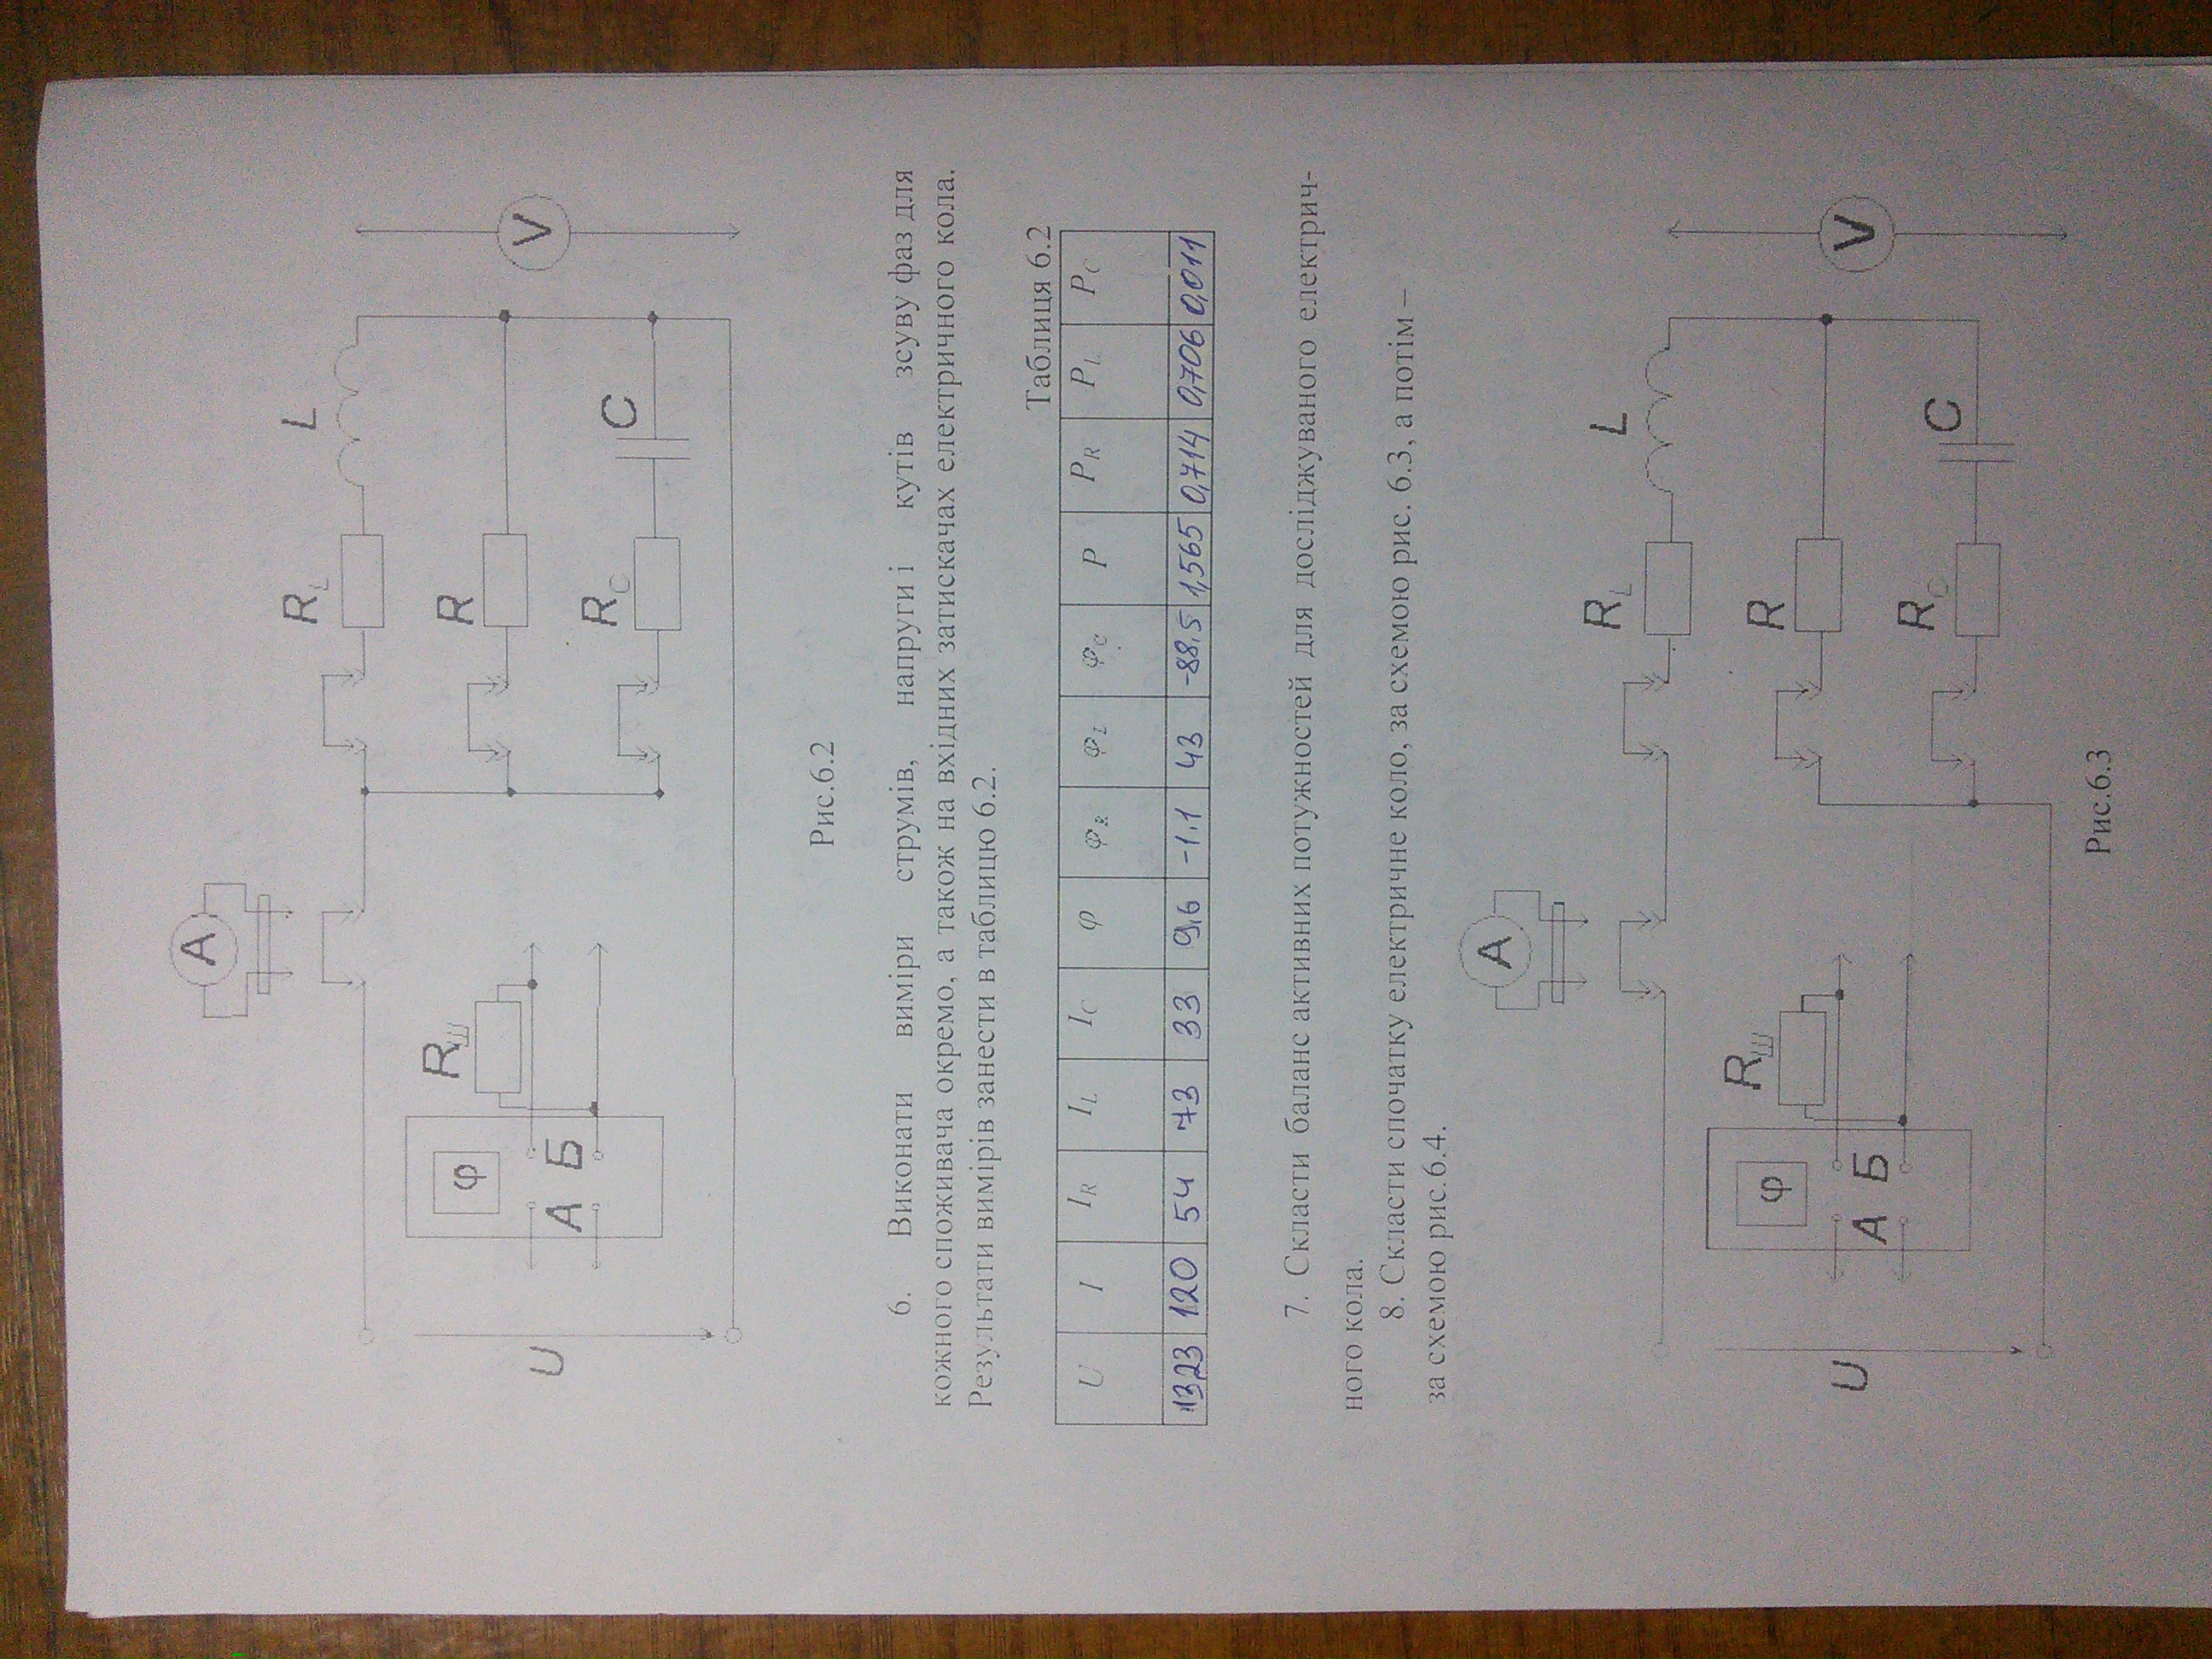 A
R L L
R
R C C
V
φ
А Б
R Ш
U
Рис.6.2
6. Виконати виміри струмів, напруги і кутів зсуву фаз для
кожного споживача окремо, а також на вхідних затискачах електричного кола.
Результати вимірів занести в таблицю 6.2.
Таблиця 6.2
U I I R I L I C φ φ R φ L φ C P P R P L P C
13,23 120 54 73 33 9,6 -1,1 43 -88,5 1,565 0,714 0,706 0,011
7. Скласти баланс активних потужностей для досліджуваного електрич-
ного кола.
8. Скласти спочатку електричне коло, за схемою рис. 6.3, а потім –
за схемою рис.6.4.
A
R L L
R
R C C
V
φ
А Б
R Ш
U
Рис.6.3